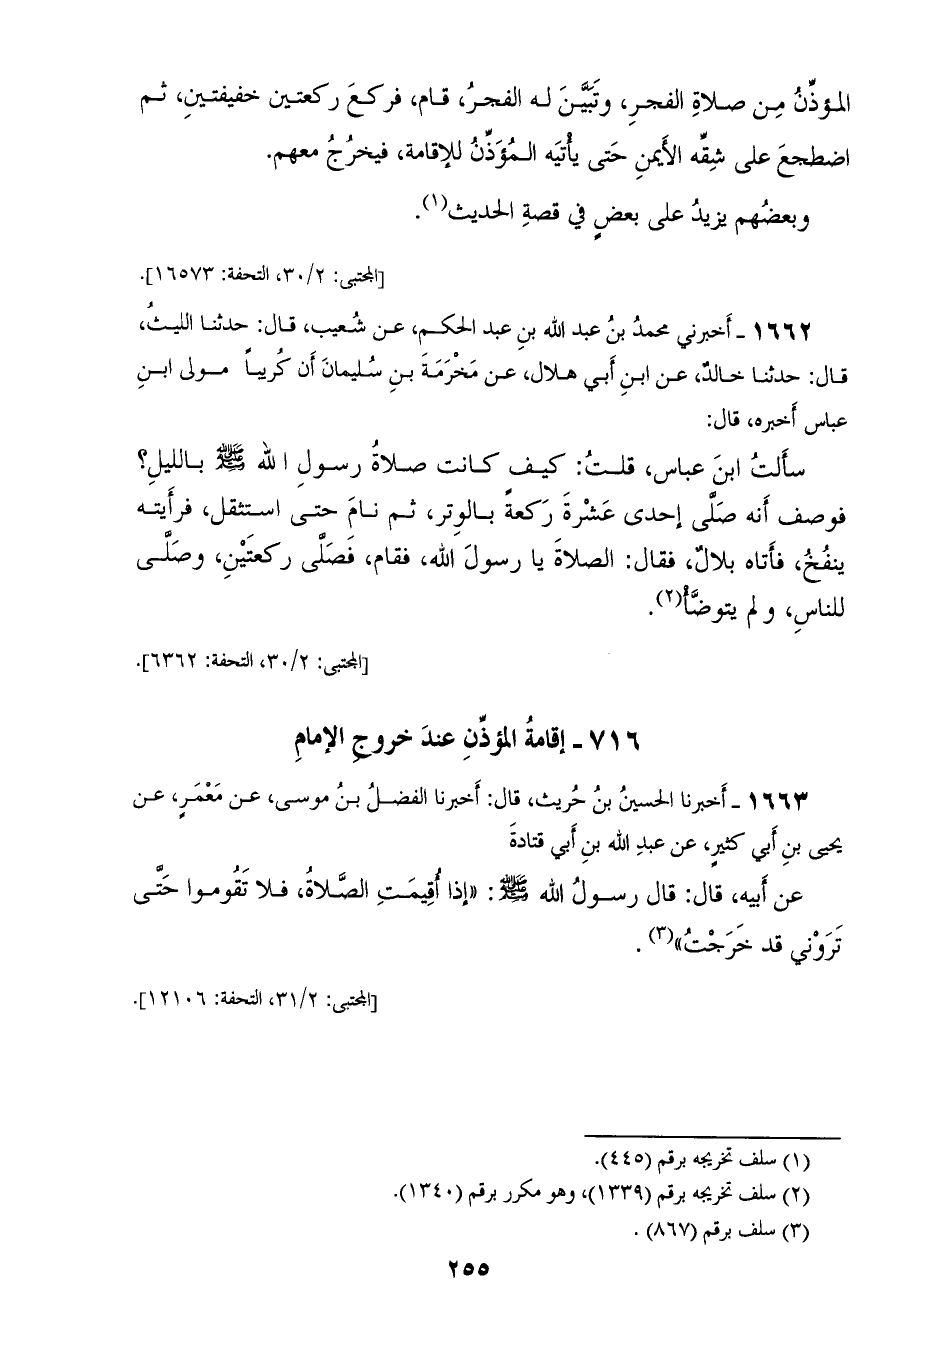 المؤذِّنُ مِن صلاةِ الفجرِ، وتَبيَّنَ له الفجرُ، قام، فركعَ ركعتين خفيفتينِ، ثم
اضطجعَ على شِقِّه الأيمنِ حَتى يأْتيَه المُؤَذِّنُ للإقامة، فيخرُجُ معهم.
وبعضُهم يزيدُ على بعضٍ في قصةِ الحديث(١).
[المجتبى: ٣٠/٢، التحفة: ١٦٥٧٣].
١٦٦٢ ـ أَخبرني محمدُ بنُ عبد الله بنِ عبد الحكم، عن شُعيب، قال: حدثنا الليثُ،
قال: حدثنا خالدٌ، عن ابنِ أَبي هلال، عن مَخْرَمَةَ بنِ سُليمانَ أَن كُريباً مولى ابنِ
عباس أَخبره، قال:
سأَلتُ ابنَ عباس، قلتُ: كيف كانت صلاةُ رسولِ الله ﷺ بالليلِ؟
فوصف أَنه صَلَّى إحدى عَشْرةَ رَكعةً بالوتر، ثم نامَ حتى استثقل، فرأَيتـه
ينفُخُ، فأَتاه بلالٌ، فقال: الصلاةَ يا رسولَ الله، فقام، فَصَلَّى ركعتَيْنِ، وصَلَّى
للناسِ، ولم يتوضَّأْ(٢).
[المجتبى: ٣٠/٢، التحفة: ٦٣٦٢].
٧١٦ ـ إقامةُ المؤذِّنِ عندَ خروجِ الإمامِ
١٦٦٣ ـ أَخبرنا الحسينُ بنُ حُريث، قال: أَخبرنا الفضلُ بنُ موسى، عن مَعْمَرٍ، عن
يحيى بنِ أَبي كثيرٍ، عن عبدِ الله بنِ أَبي قتادةَ
عن أَبيه، قال: قال رسولُ الله ﷺ: «إذا أُقِيمَتِ الصَّلاةُ، فلا تَقُوموا حَتَّى
تَرَوْني قد خَرَجْتُ»(٣).
[المجتبى: ٣١/٢، التحفة: ١٢١٠٦].
(١) سلف تخريجه برقم (٤٤٥).
(٢) سلف تخريجه برقم (١٣٣٩)، وهو مكرر برقم (١٣٤٠).
(٣) سلف برقم (٨٦٧).
٢٥٥